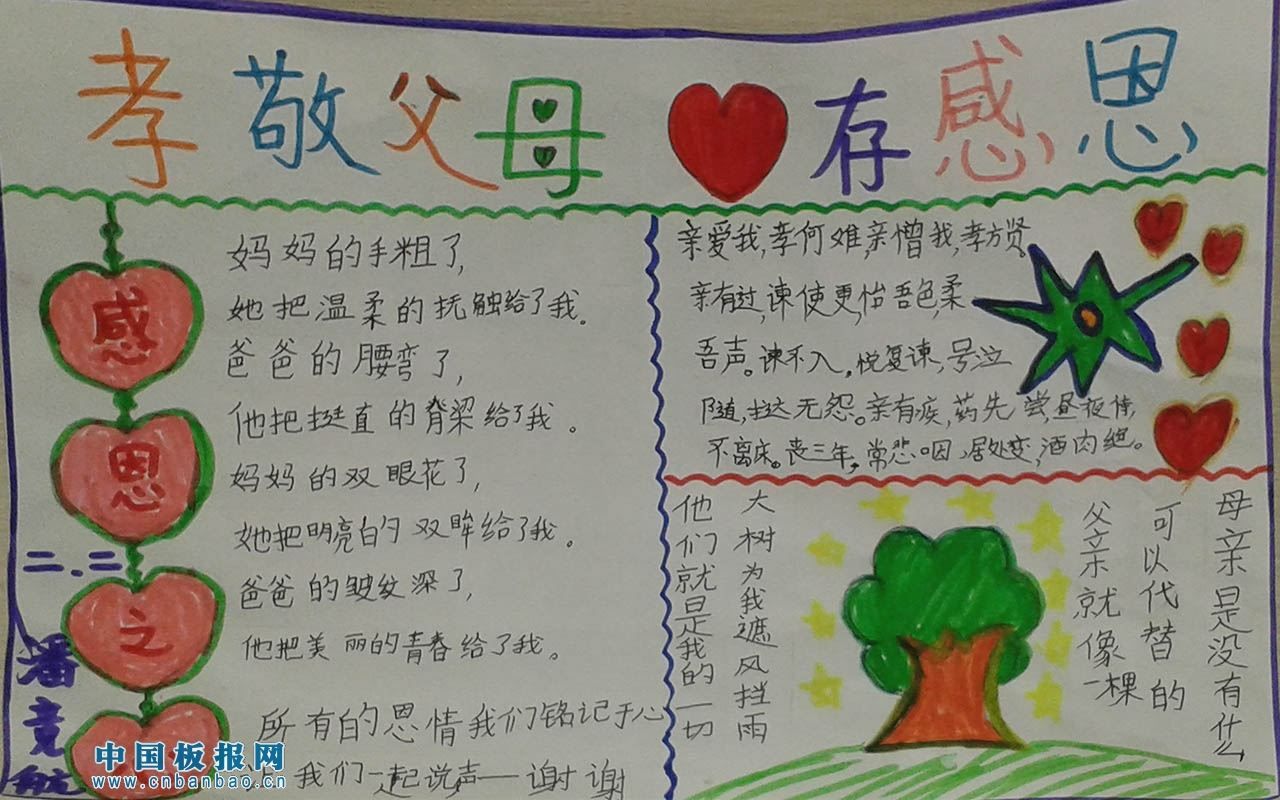 孝敬父母 存感恩
感
恩
之
二.二
潘竞航
妈妈的手粗了,
她把温柔的抚触给了我。
爸爸的腰弯了,
他把挺直的脊梁给了我。
妈妈的双眼花了,
她把明亮的双眸给了我。
爸爸的皱纹深了,
他把美丽的青春给了我。
所有的恩情我们铭记于心
我们一起说声——谢谢
亲爱我,孝何难,亲憎我,孝方贤。
亲有过,谏使更,怡吾色,柔
吾声。谏不入。悦复谏,号泣
随,挞无怨。亲有疾,药先尝,昼夜侍,
不离床。丧三年,常悲咽,居处变,酒肉绝。
母亲是没有什么
可以代替的
父亲就像一棵
大树为我遮风挡雨
他们就是我的一切
中国板报网
www.cnbanbao.cn